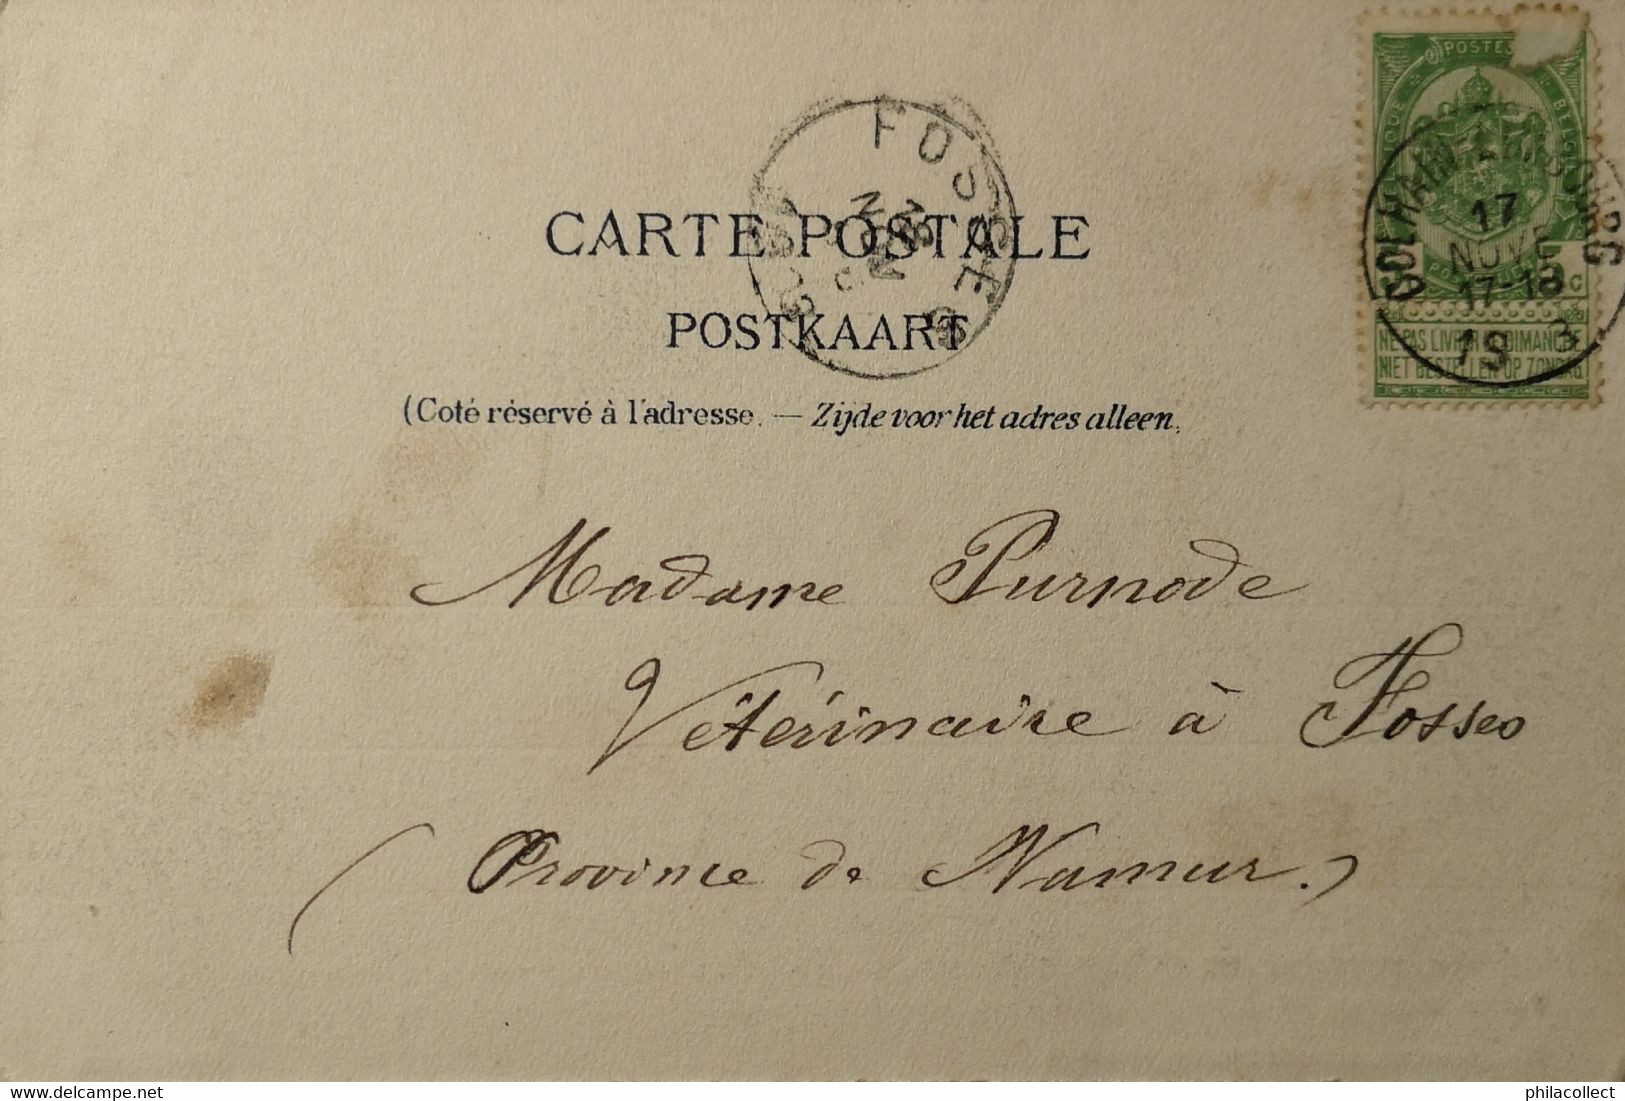 POSTES
BELGIQUE
DOLHAIN-LIMBOURG
17
NOVE
17-18
19 3
5 c
NE PAS LIVRER LE DIMANCHE
NIET BESTELLEN OP ZONDAG
FOSSE
CARTE POSTALE
POSTKAART
(Coté réservé à l'adresse. — Zijde voor het adres alleen.
Madame Purnode
Vétérinaire à Fosses
(Province de Namur.)
delcampe.net
philacollect